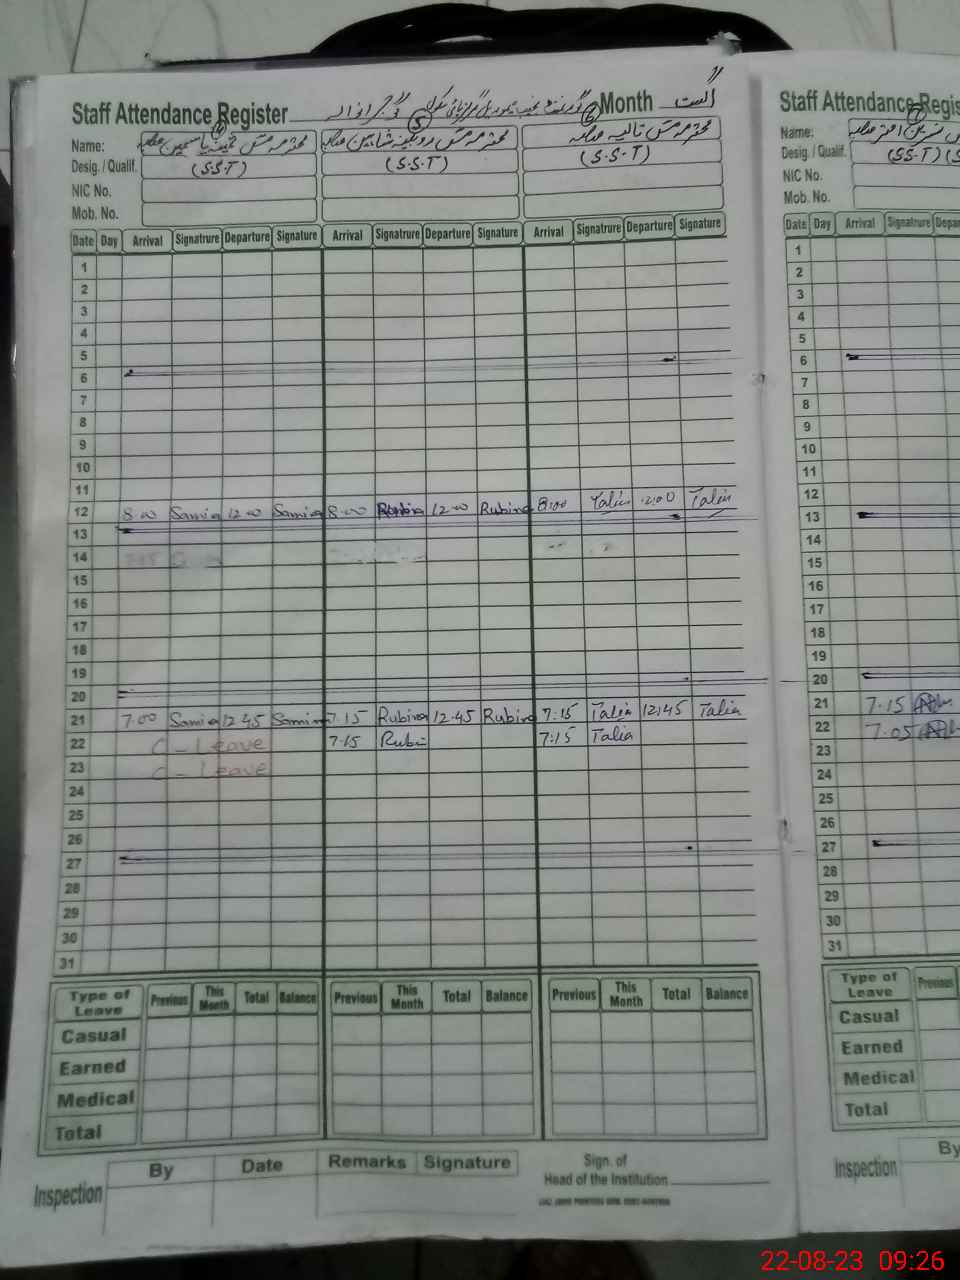 Staff Attendance Register گورنمنٹ Month اگست
Name: 4 محترمہ مس یاسمین صاحبہ 5 محترمہ مس روبینہ شاہین صاحبہ 6 محترمہ مس تالیہ صاحبہ
Desig. / Qualif. (S.S.T) (S.S.T) (S.S.T)
NIC No.
Mob. No.
Date Day Arrival Signatrure Departure Signature Arrival Signatrure Departure Signature Arrival Signatrure Departure Signature
1
2
3
4
5
6
7
8
9
10
11
12 8:00 Samia 12:00 Samia 8:00 Rubina 12:00 Rubina 8:00 Talia 12:00 Talia
13
14
15
16
17
18
19
20
21 7:00 Samia 12:45 Samina 7:15 Rubina 12:45 Rubina 7:15 Talia 12:45 Talia
22 C - Leave 7:15 Rubi 7:15 Talia
23 C - Leave
24
25
26
27
28
29
30
31
Type of Leave Previous This Month Total Balance Previous This Month Total Balance Previous This Month Total Balance
Casual
Earned
Medical
Total
Inspection By Date Remarks Signature
Sign. of
Head of the Institution
Staff Attendance Regis
Name: 7
Desig. / Qualif. (S.S.T) (S
NIC No.
Mob. No.
Date Day Arrival Signatrure Depar
1
2
3
4
5
6
7
8
9
10
11
12
13
14
15
16
17
18
19
20
21 7.15
22 7.05
23
24
25
26
27
28
29
30
31
Type of Leave Previous
Casual
Earned
Medical
Total
Inspection By
22-08-23 09:26